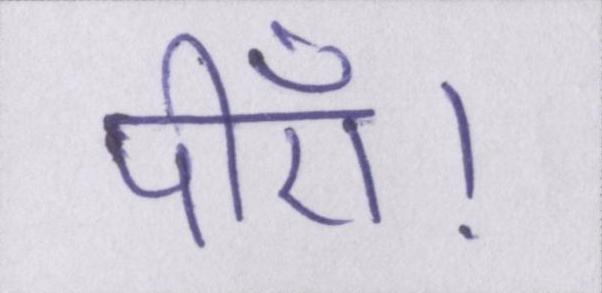 पीएँ!